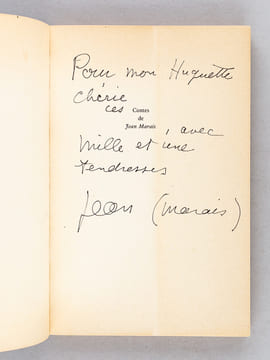 Pour mon Huguette
chérie
ces Contes
de
Jean Marais
avec
mille et une
tendresses
Jean (Marais)